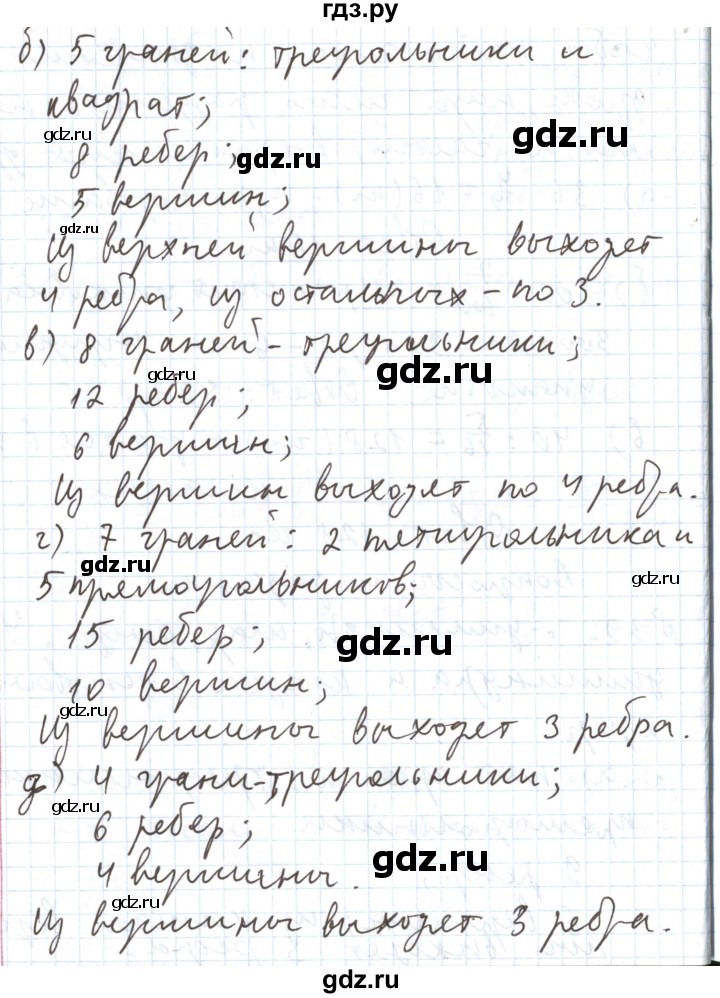 гдз.ру
б) 5 граней: треугольники и
квадрат;
gdz.ru
8 ребер;
gdz.ru
5 вершин;
gdz.ru
Из верхней вершины выходят
4 ребра, из остальных - по 3.
в) 8 граней - треугольники;
gdz.ru
gdz.ru
12 ребер;
6 вершин;
Из вершин выходят по 4 ребра.
г) 7 граней: 2 пятиугольника и
gdz.ru
gdz.ru
5 прямоугольников;
15 ребер;
gdz.ru
10 вершин;
gdz.ru
Из вершины выходят 3 ребра.
д) 4 грани - треугольники;
gdz.ru
6 ребер;
gdz.ru
4 вершины.
Из вершины выходят 3 ребра.
gdz.ru
gdz.ru